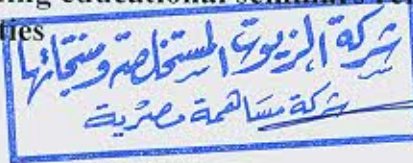 educational seminars
ties
شركة الزيوت المستخلصة ومنتجاتها
شركة مساهمة مصرية